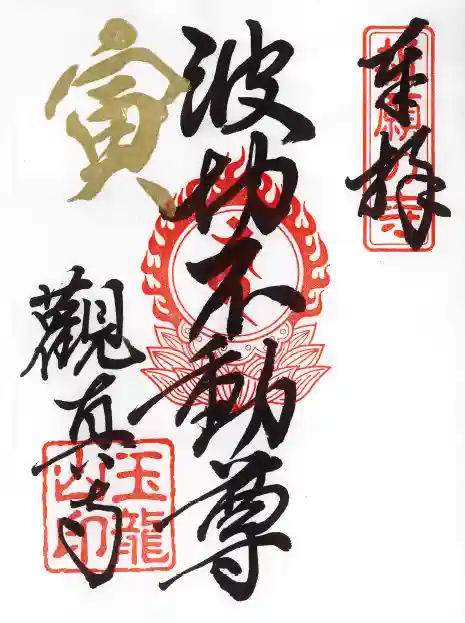 奉拝
波切不動尊
寅
觀真寺
玉龍山印